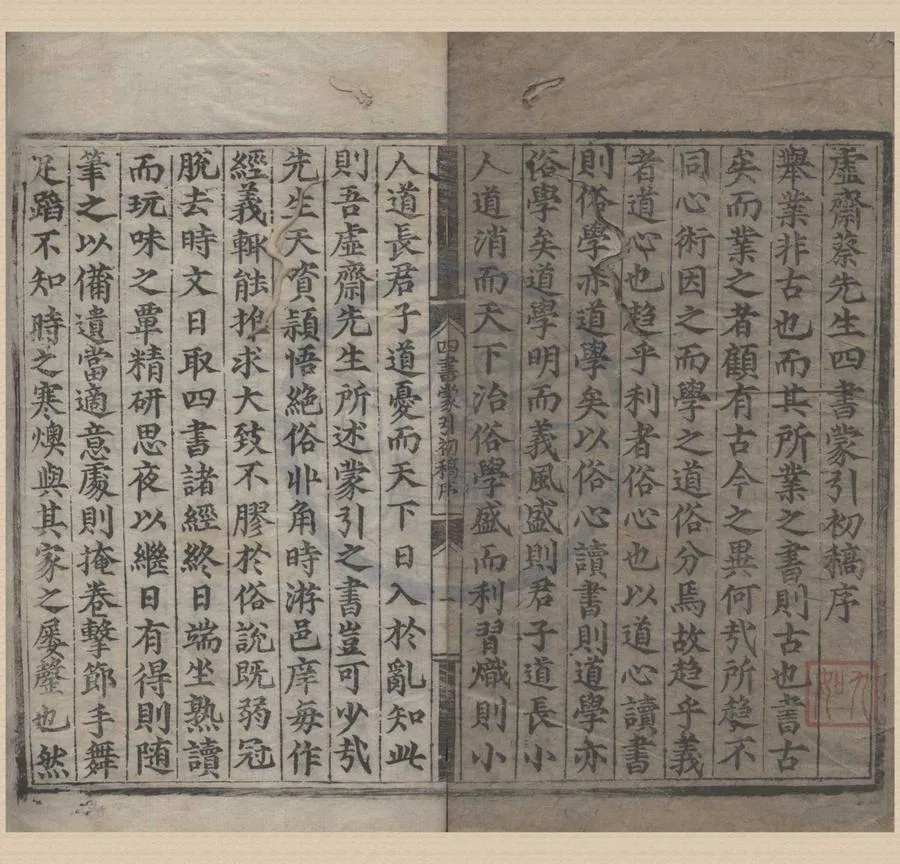 虛齋蔡先生四書蒙引初稿序
舉業非古也而其所業之書則古也書古
矣而業之者顧有古今之異何㢤所趍不
同心術因之而學之道俗分焉故趍乎義
者道心也趍乎利者俗心也以道心讀書
則俗學亦道學矣以俗心讀書則道學亦
俗學矣道學明而義風盛則君子道長小
人道消而天下治俗學盛而利習熾則小
四書蒙引初稿序
人道長君子道憂而天下日入於亂知此
則吾虛齋先生所述蒙引之書豈可少㢤
先生天資頴悟絶俗丱角時游邑庠每作
經義輒能推求大致不膠於俗說既弱冠
脫去時文日取四書諸經終日端坐熟讀
而玩味之覃精研思夜以繼日有得則随
筆之以備遺當適意處則掩卷擊節手舞
足蹈不知時之寒燠與其家之屢罄也然